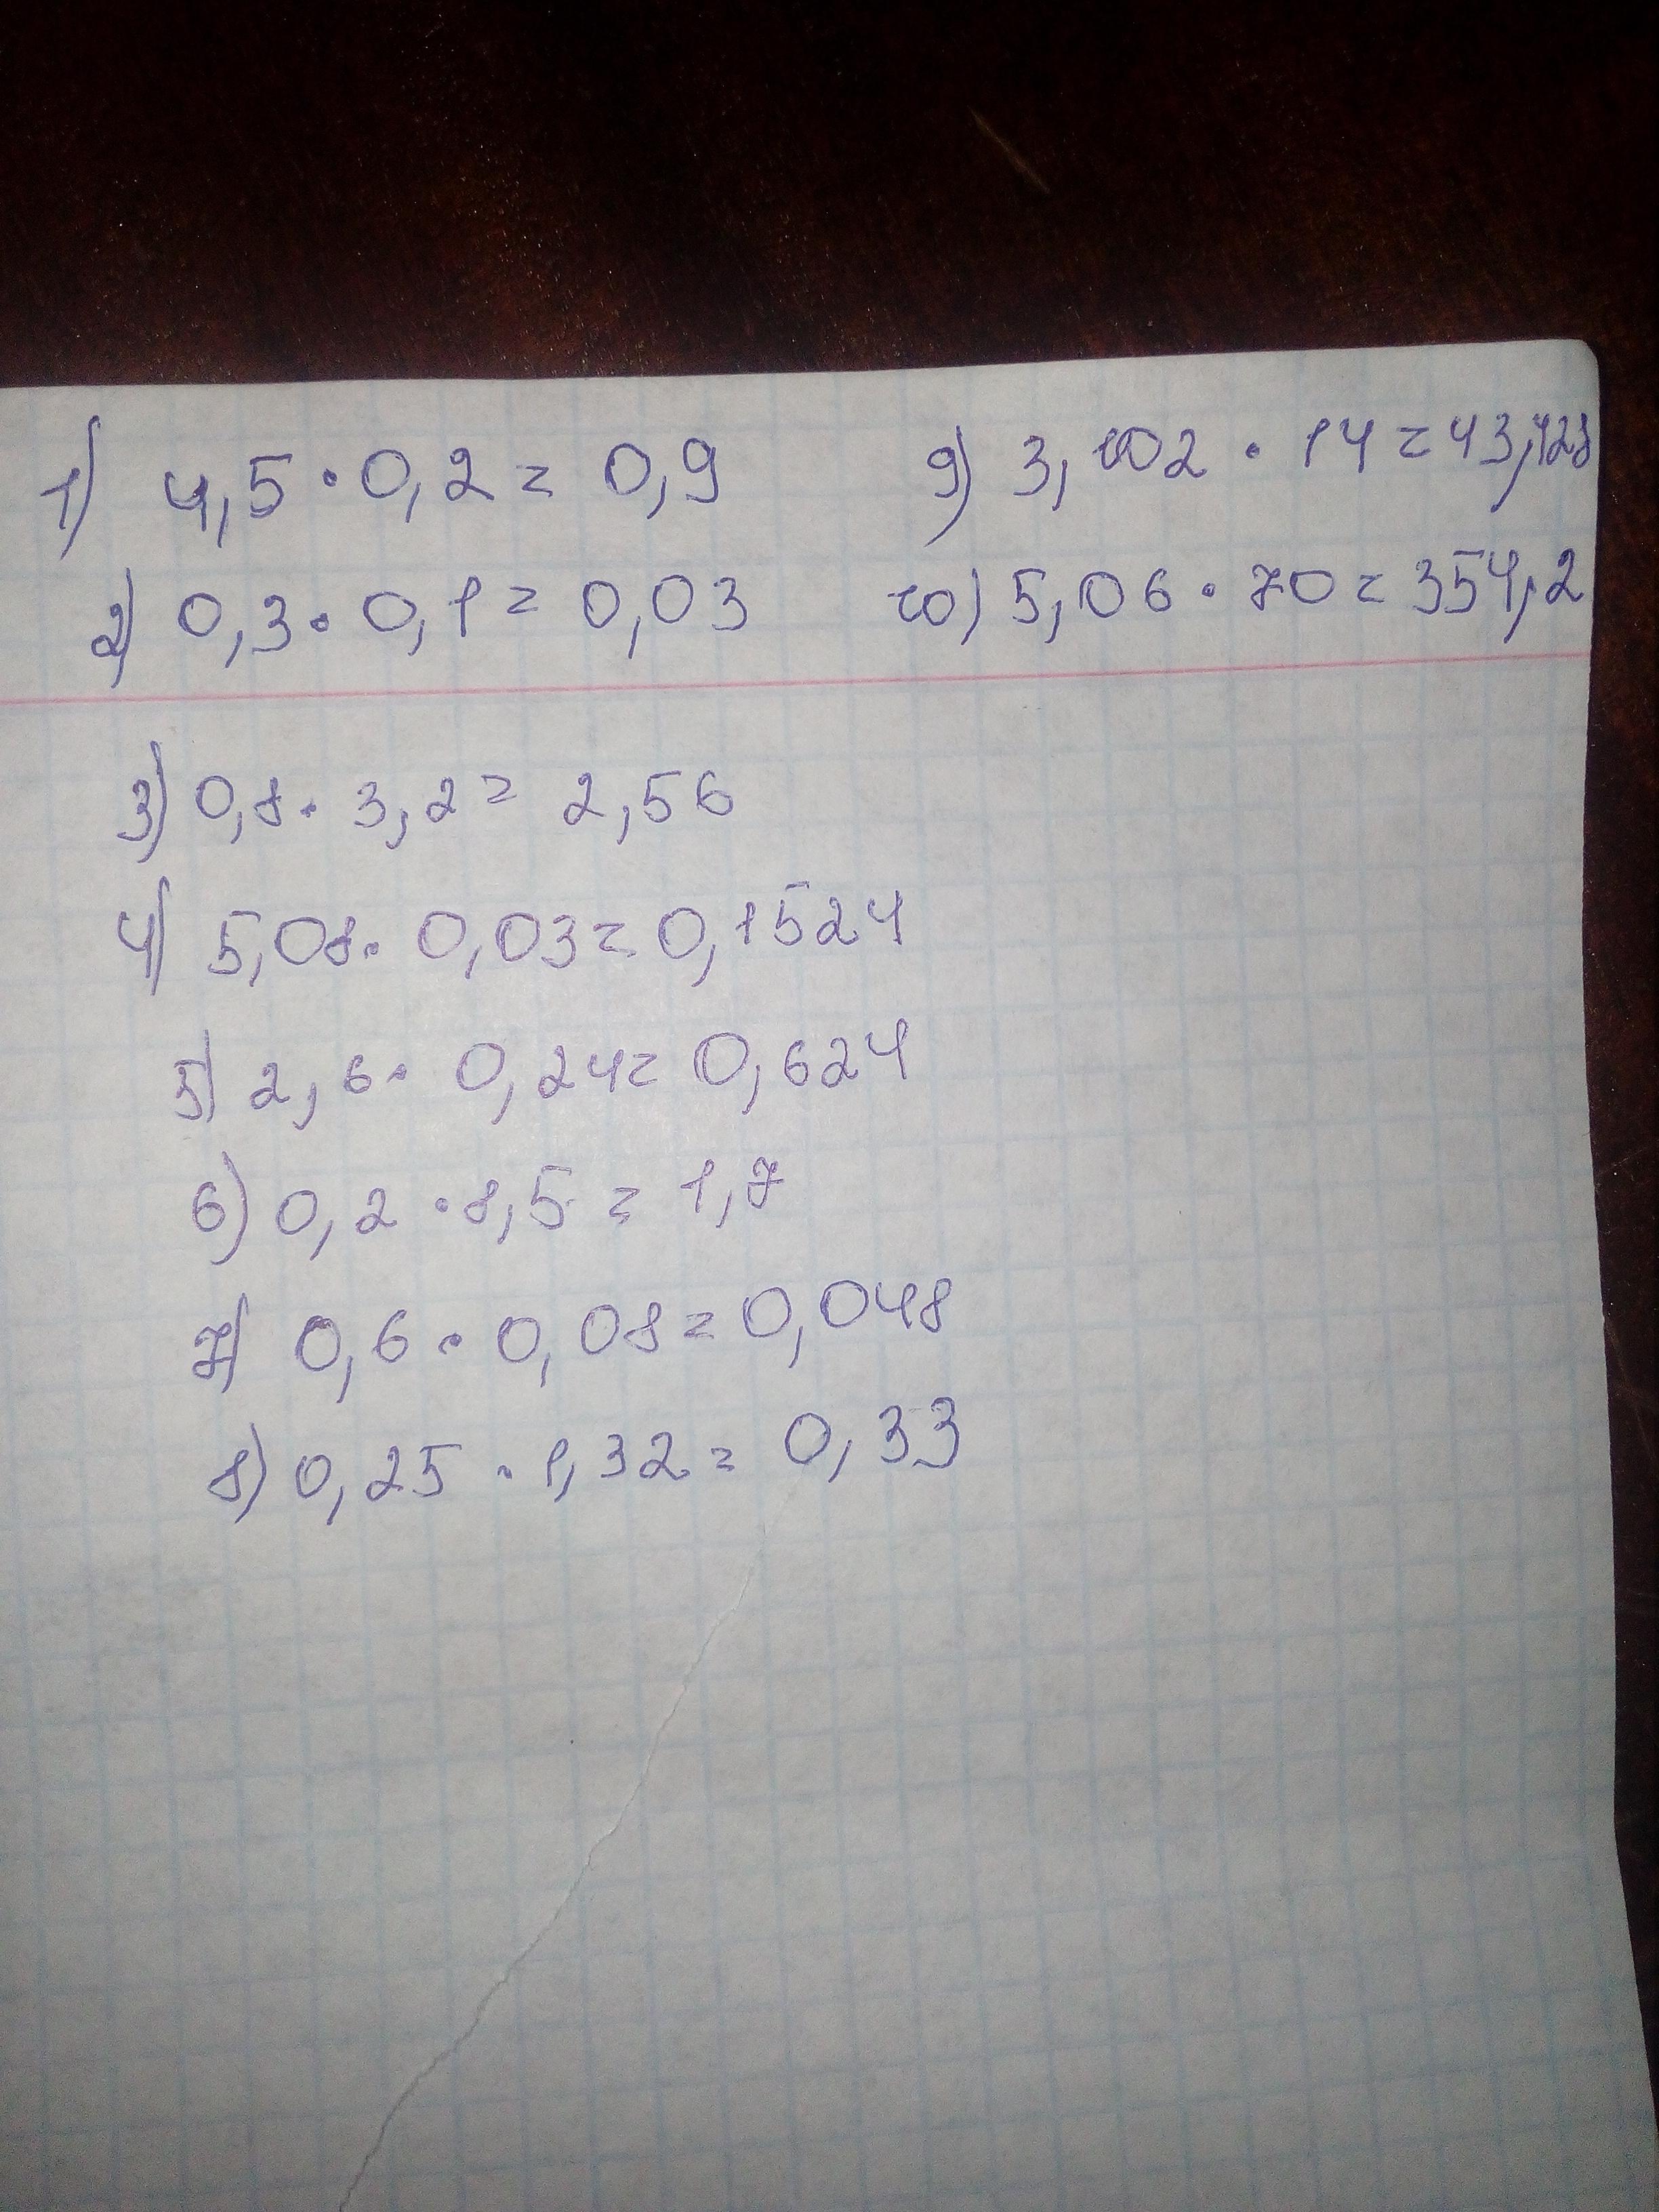 1) 4,5 · 0,2 = 0,9
2) 0,3 · 0,1 = 0,03
3) 0,8 · 3,2 = 2,56
4) 5,08 · 0,03 = 0,1524
5) 2,6 · 0,24 = 0,624
6) 0,2 · 8,5 = 1,7
7) 0,6 · 0,08 = 0,048
8) 0,25 · 1,32 = 0,33
9) 3,102 · 14 = 43,428
10) 5,06 · 70 = 354,2